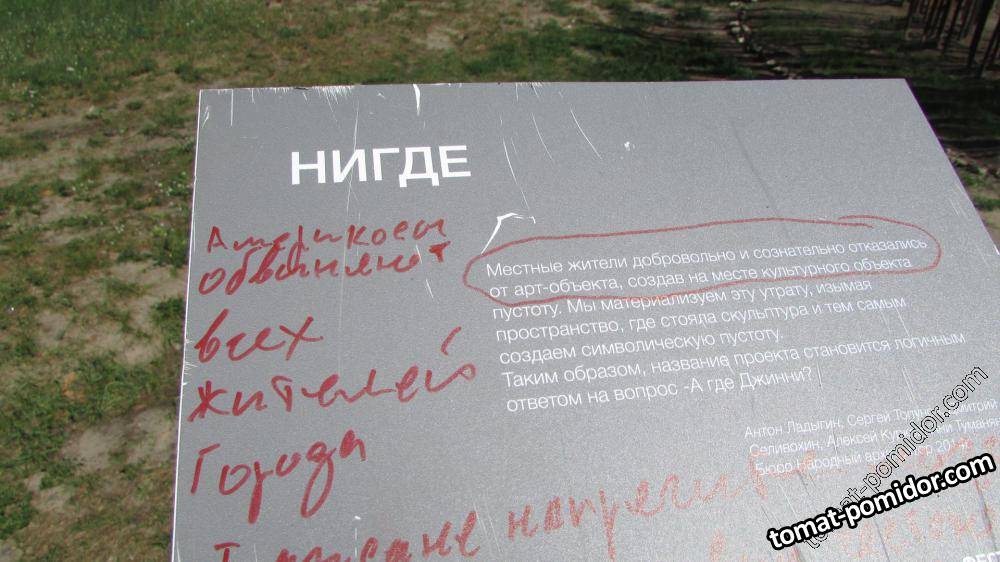 НИГДЕ
Америкосы
обвиняют
всех
жителей
города
Местные жители добровольно и сознательно отказались
от арт-объекта, создав на месте культурного объекта
пустоту. Мы материализуем эту утрату, изымая
пространство, где стояла скульптура и тем самым
создаем символическую пустоту.
Таким образом, название проекта становится логичным
ответом на вопрос -А где Джинни?
Антон Ладыгин, Сергей
Селивохин, Алексей
Бюро Народный
tomat-pomidor.com
tomat-pomidor.com